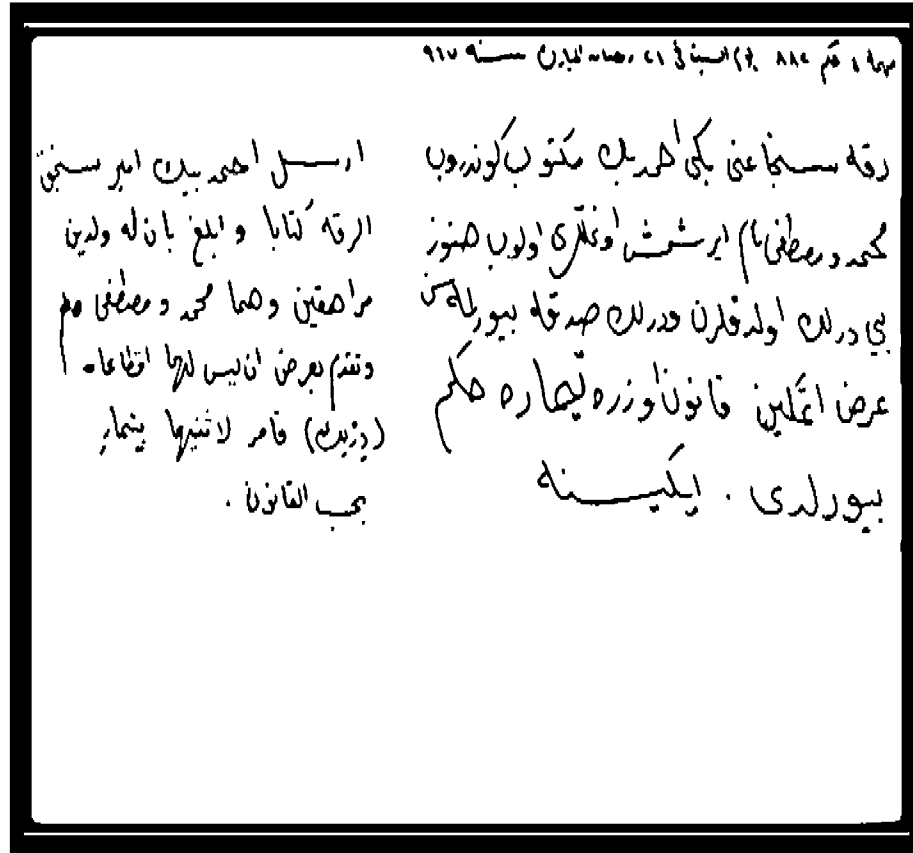 مهمة ١ حكم ٨٨٤ يوم السبت في ٢١ رمضان المبارك سنة ٩٦٧
رقه سنجاغى بكى احمد بك مكتوب كوندروب
محمد و مصطفى نام ايرشمش اوغللرى اولوب هنوز
بى درلك اولدقلرن ودرلك صدقه بيورلمه سن
عرض اتمكين قانون اوزره تيماره حكم
بيورلدى . ايكيسنه
ارسل احمد بيك امير سنجق
الرقه كتابا و ابلغ بان له ولدين
مراهقين وهما محمد و مصطفى
وتقدم بعرض ان ليس لهما اقطاعا
(ديرلك) فامر لاثنيهما بتيمار
بحسب القانون .